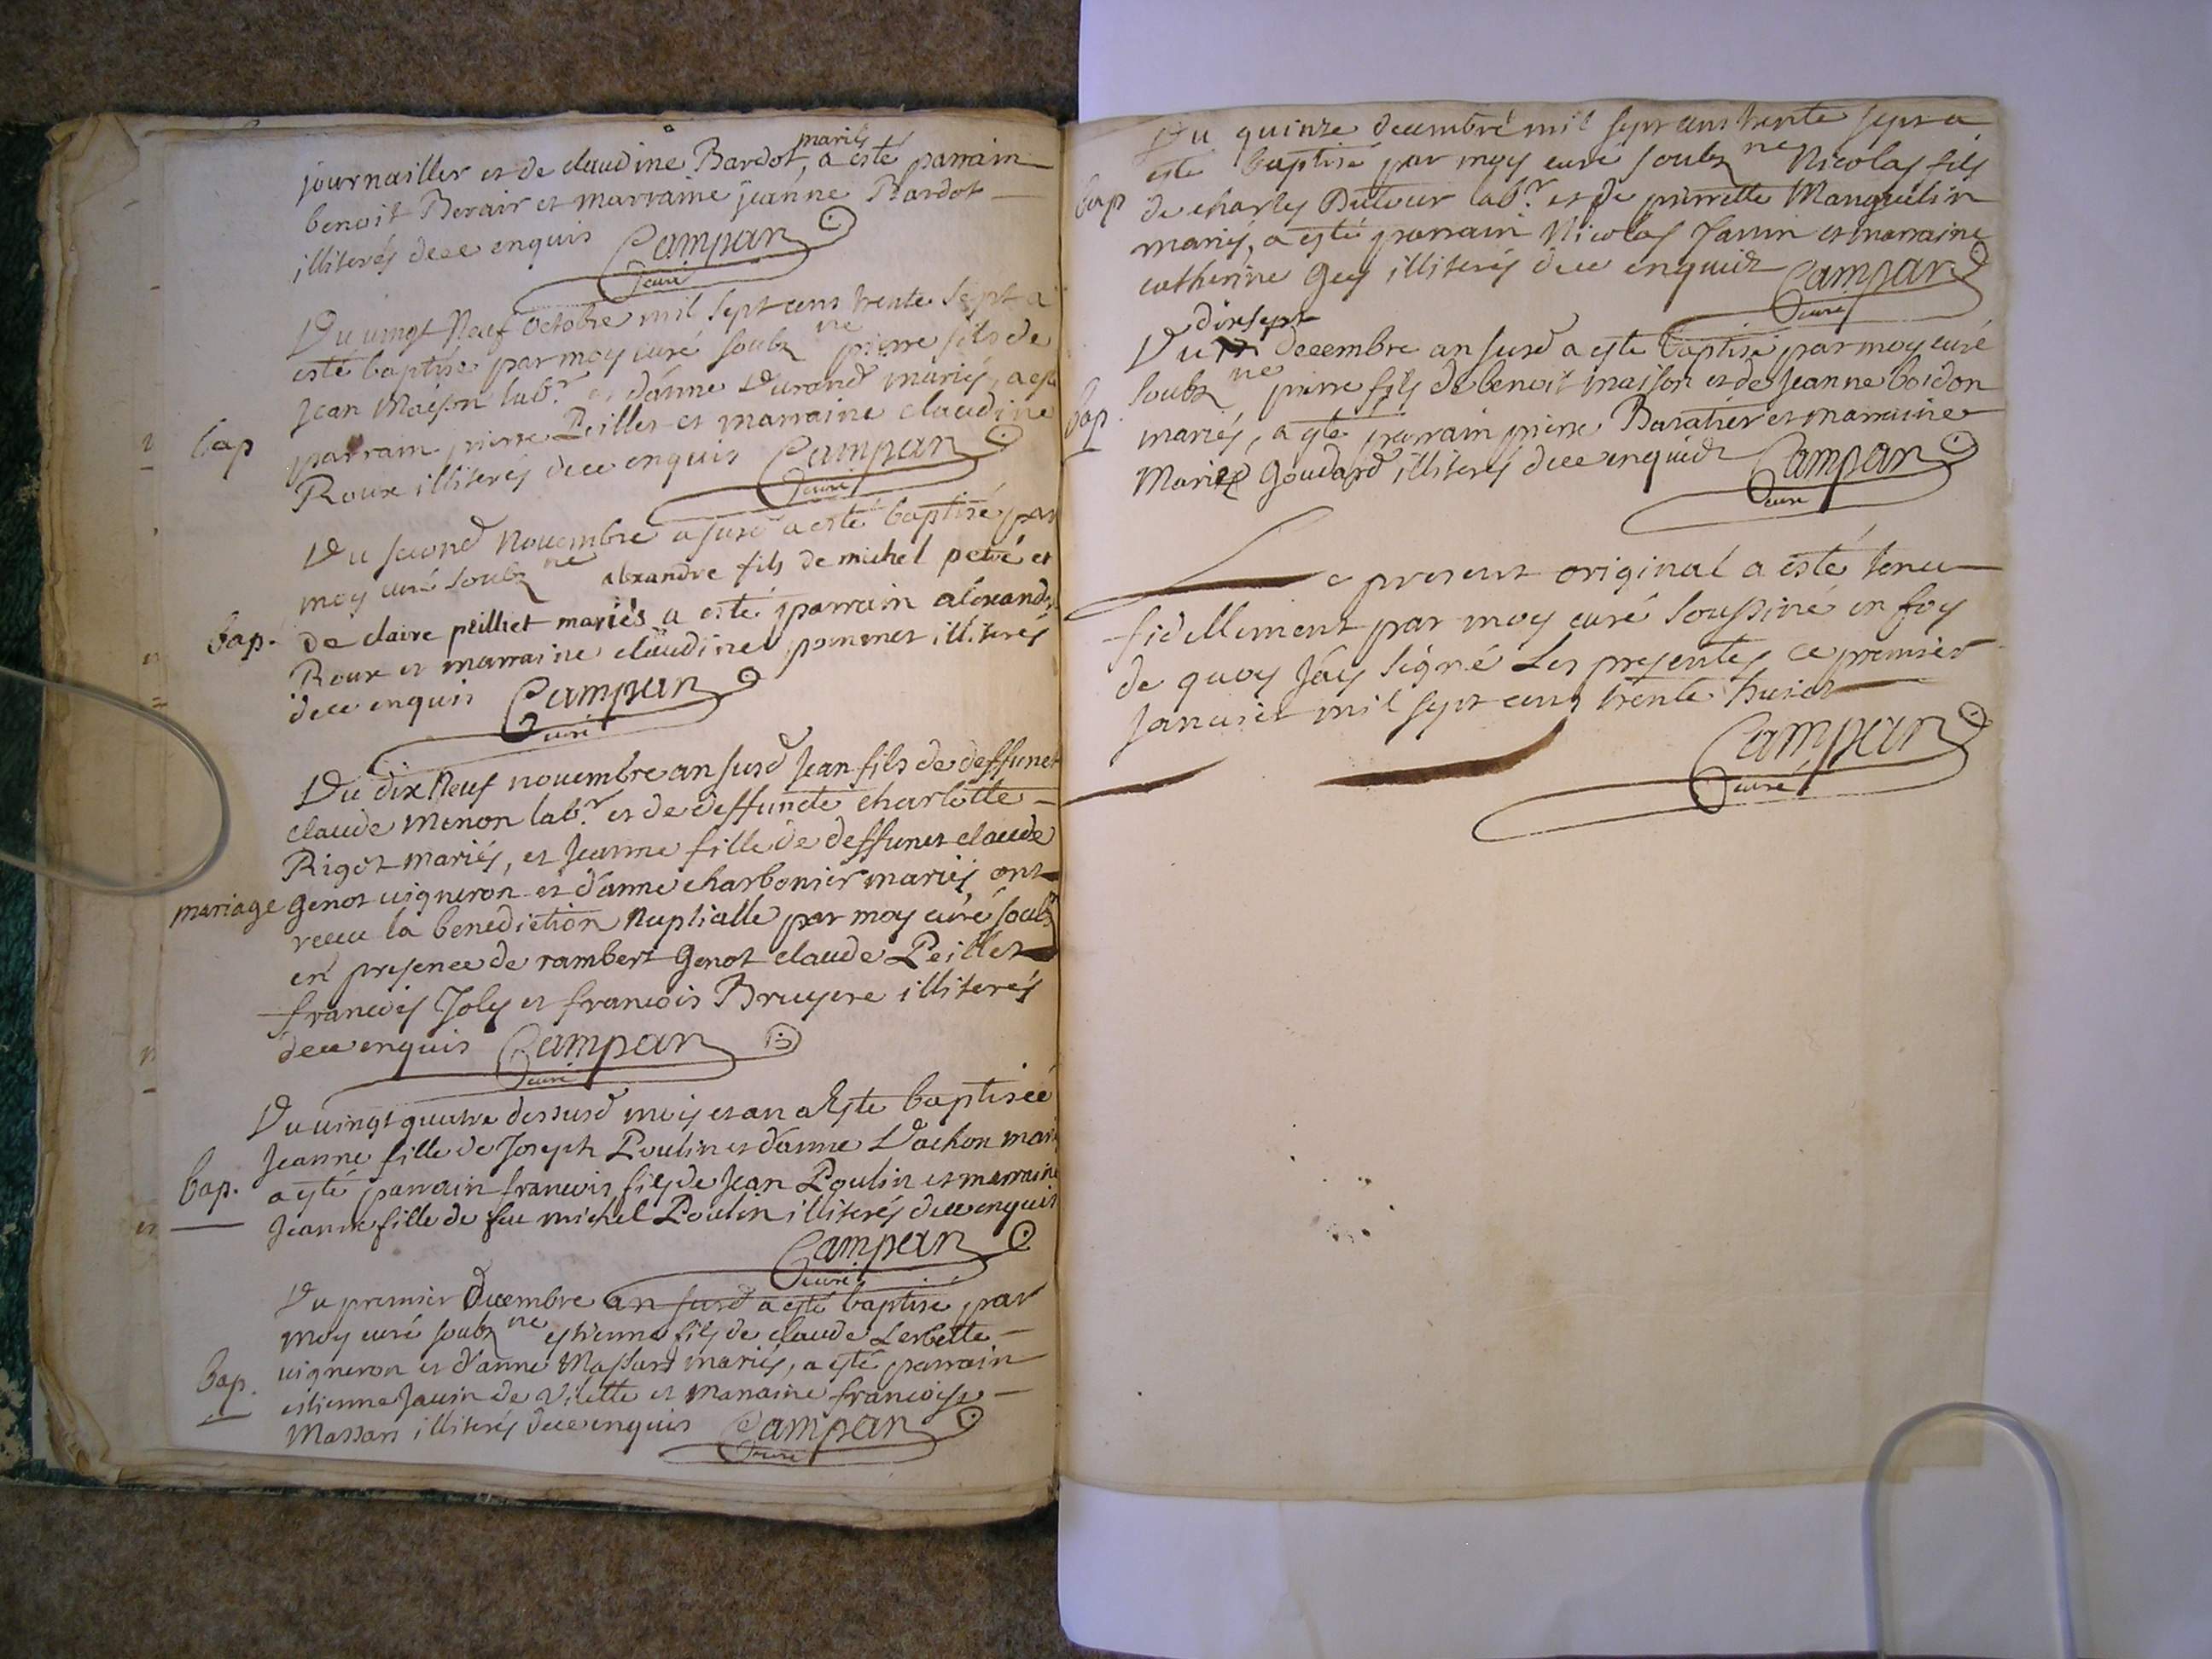 journaillier et de claudine Bardot mariés, a esté parrain
benoit Berair et marraine jeanne Bardot
illiterés de ce enquis Campan
curé
Du vingt Neuf Octobre mil sept cens trente sept a
esté baptisé par moy curé soubz ne pierre fils de
Jean Maison lab.r et d'anne Durand mariés, a esté
bap
parrain pierre Peillet et marraine claudine
Roux illiterés de ce enquis Campan
curé
Du second Novembre a susd a esté baptisé par
moy curé soubz ne alexandre fils de michel petré et
bap.
de claire peilliet mariés a esté parrain alexandre
Roux et marraine claudine pommet illiterés
de ce enquis Campan
curé
Du dix Neuf novembre an susd Jean fils de deffunct
claude Menon lab.r et de deffuncte charlotte
Rigot mariés, et Jeanne fille de deffunct claude
mariage
genot vigneron et d'anne charbonier mariés ont
receu la benediction Nuptialle par moy curé soubz
en presence de rambert Genot claude Peillet
francois Joly et francois Bruyere illiterés
de ce enquis Campan
curé
Du vingt quatre dessusd mois et an a Esté baptisée
Jeanne fille de Joseph Poulin et d'anne Vachon mariés
bap.
a esté parrain francois fils de Jean Poulin et marraine
Jeanne fille de feu michel Poulin illiterés de ce enquis
Campan
curé
Du premier Decembre an susd a esté baptisé par
moy curé soubz ne estienne fils de claude Lerbette
vigneron et d'anne Massard mariés, a esté parrain
bap.
estienne Janin de Vilette et marraine francoise
Massars illiterés de ce enquis Campan
curé
Du quinze decembre mil sept cens trente sept a
esté baptisé par moy curé soubz ne Nicolas fils
bap
de charles Duteur lab.r et de pierrette Manguelin
mariés, a esté parrain Nicolas Janin et marraine
catherine Gey illiterés de ce enquidz Campan
curé
dix sept
Du decembre an susd a esté baptisé par moy curé
soubz ne pierre fils de benoit maison et de Jeanne boidon
bap.
mariés, a esté parrain pierre Baratier et marraine
Marie Goudard illiterés de ce enquidz Campan
curé
Le present original a esté tenu
fidellement par moy curé soussiné en foy
de quoy J'ay signé Les presentes ce premier
Januier mil sept cens trente huict
Campan
curé